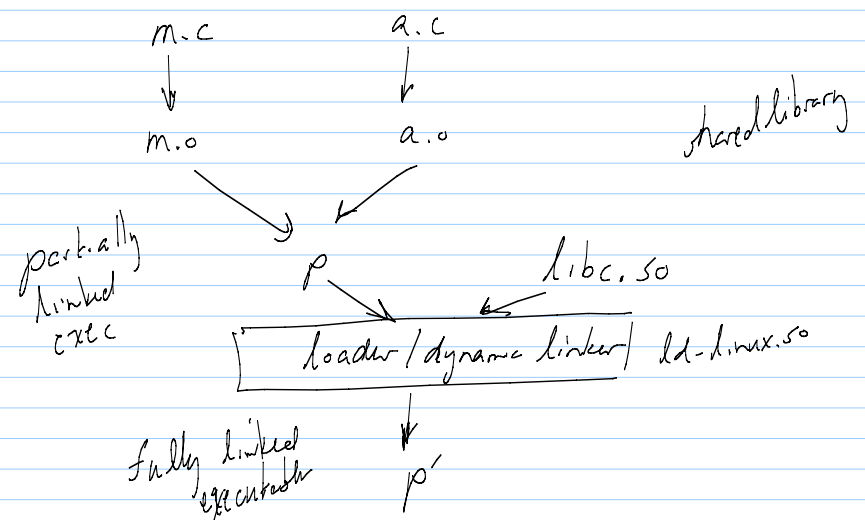 m.c
a.c
m.o
a.o
shared library
partially
linked
exec
p
libc.so
loader/dynamic linker
ld-linux.so
fully linked
executable
p'